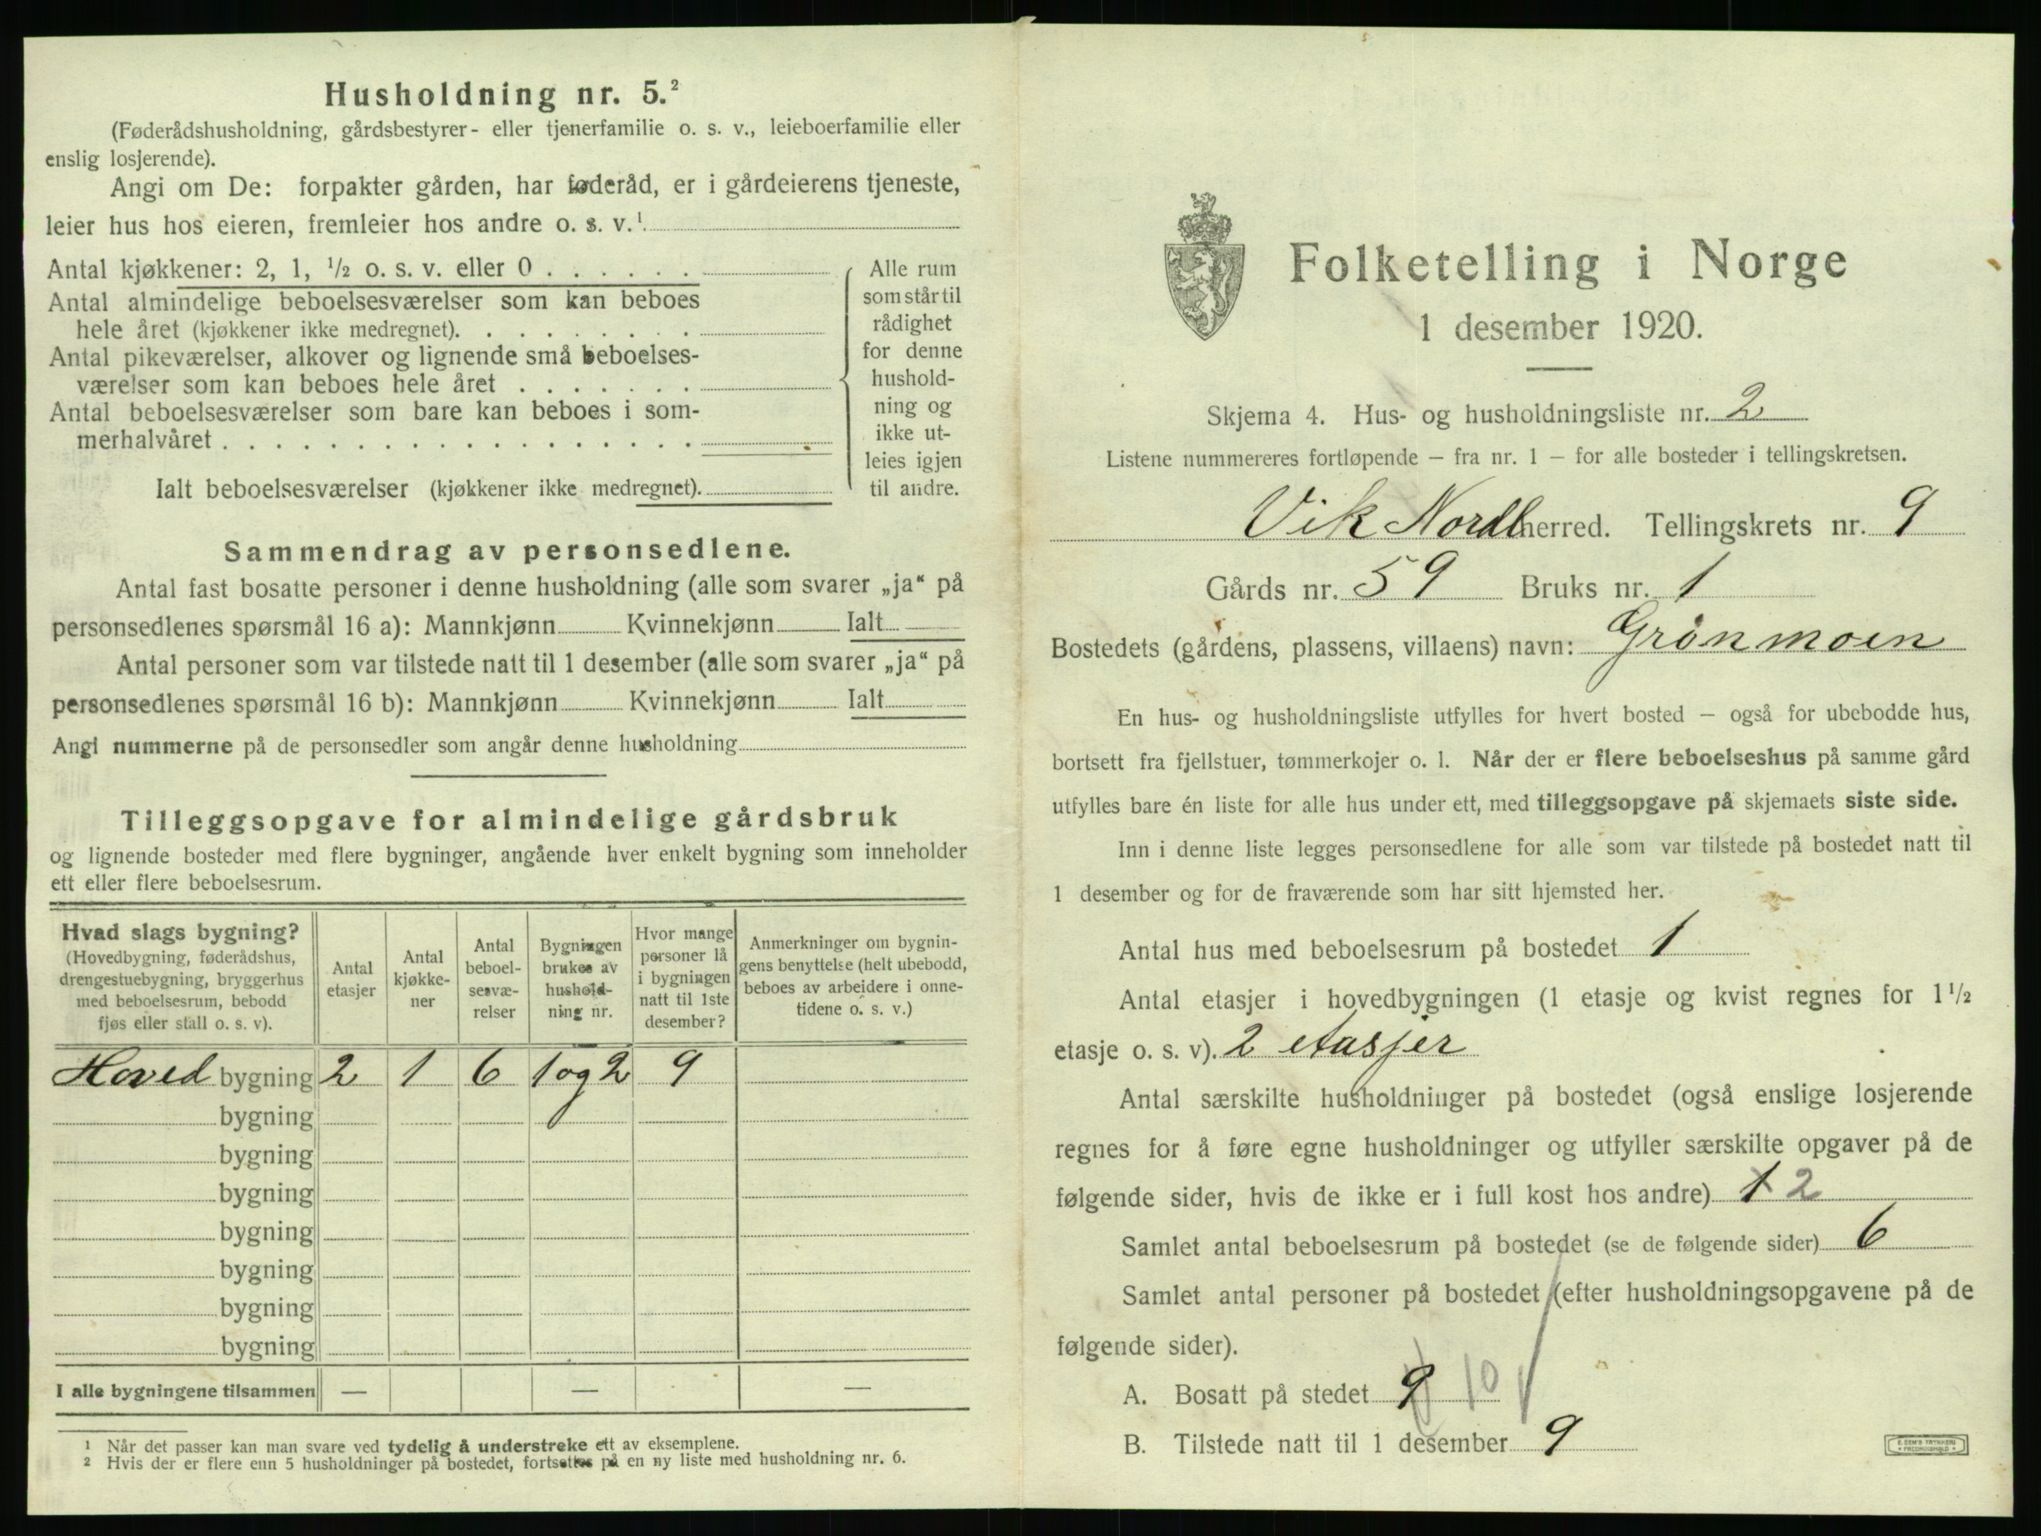 Husholdning nr. 5.²
(Føderådshusholdning, gårdsbestyrer- eller tjenerfamilie o. s. v., leieboerfamilie eller
enslig losjerende).
Angi om De: forpakter gården, har føderåd, er i gårdeierens tjeneste,
leier hus hos eieren, fremleier hos andre o. s. v.¹
Antal kjøkkener: 2, 1, ½ o. s. v. eller 0 . . . . . .
Antal almindelige beboelsesværelser som kan beboes
hele året (kjøkkener ikke medregnet). . . . . . . . .
Antal pikeværelser, alkover og lignende små beboelses-
værelser som kan beboes hele året . . . . . . .
Antal beboelsesværelser som bare kan beboes i som-
merhalvåret . . . . . . . . . . . . . . . . . .
Ialt beboelsesværelser (kjøkkener ikke medregnet).
Alle rum
som står til
rådighet
for denne
hushold-
ning og
ikke ut-
leies igjen
til andre.
Sammendrag av personsedlene.
Antal fast bosatte personer i denne husholdning (alle som svarer „ja“ på
personsedlenes spørsmål 16 a): Mannkjønn Kvinnekjønn Ialt
Antal personer som var tilstede natt til 1 desember (alle som svarer „ja“ på
personsedlenes spørsmål 16 b): Mannkjønn Kvinnekjønn Ialt
Angi nummerne på de personsedler som angår denne husholdning
Tilleggsopgave for almindelige gårdsbruk
og lignende bosteder med flere bygninger, angående hver enkelt bygning som inneholder
ett eller flere beboelsesrum.
Hvad slags bygning?
(Hovedbygning, føderådshus,
drengestuebygning, bryggerhus
med beboelsesrum, bebodd
fjøs eller stall o. s. v).
Antal
etasjer
Antal
kjøkke-
ner
Antal
beboel-
sesvæ-
relser
Bygningen
brukes av
hushold-
ning nr.
Hvor mange
personer lå
i bygningen
natt til 1ste
desember?
Anmerkninger om bygnin-
gens benyttelse (helt ubebodd,
beboes av arbeidere i onne-
tidene o. s. v.)
Hoved bygning 2 1 6 1 og 2 9
bygning
bygning
bygning
bygning
bygning
bygning
bygning
I alle bygningene tilsammen — — —
¹ Når det passer kan man svare ved tydelig å understreke ett av eksemplene.
² Hvis der er flere enn 5 husholdninger på bostedet, fortsettes på en ny liste med husholdning nr. 6.
Folketelling i Norge
1 desember 1920.
Skjema 4. Hus- og husholdningsliste nr. 2
Listene nummereres fortløpende – fra nr. 1 – for alle bosteder i tellingskretsen.
Vik Nordl herred. Tellingskrets nr. 9
Gårds nr. 59 Bruks nr. 1
Bostedets (gårdens, plassens, villaens) navn: Grønmoen
En hus- og husholdningsliste utfylles for hvert bosted – også for ubebodde hus,
bortsett fra fjellstuer, tømmerkojer o. l. Når der er flere beboelseshus på samme gård
utfylles bare én liste for alle hus under ett, med tilleggsopgave på skjemaets siste side.
Inn i denne liste legges personsedlene for alle som var tilstede på bostedet natt til
1 desember og for de fraværende som har sitt hjemsted her.
Antal hus med beboelsesrum på bostedet 1
Antal etasjer i hovedbygningen (1 etasje og kvist regnes for 1½
etasje o. s. v). 2 etasjer
Antal særskilte husholdninger på bostedet (også enslige losjerende
regnes for å føre egne husholdninger og utfyller særskilte opgaver på de
følgende sider, hvis de ikke er i full kost hos andre) 1 2
Samlet antal beboelsesrum på bostedet (se de følgende sider) 6
Samlet antal personer på bostedet (efter husholdningsopgavene på de
følgende sider).
A. Bosatt på stedet 9 10
B. Tilstede natt til 1 desember 9
E. SEM'S TRYKKERI
FREDRIKSHALD